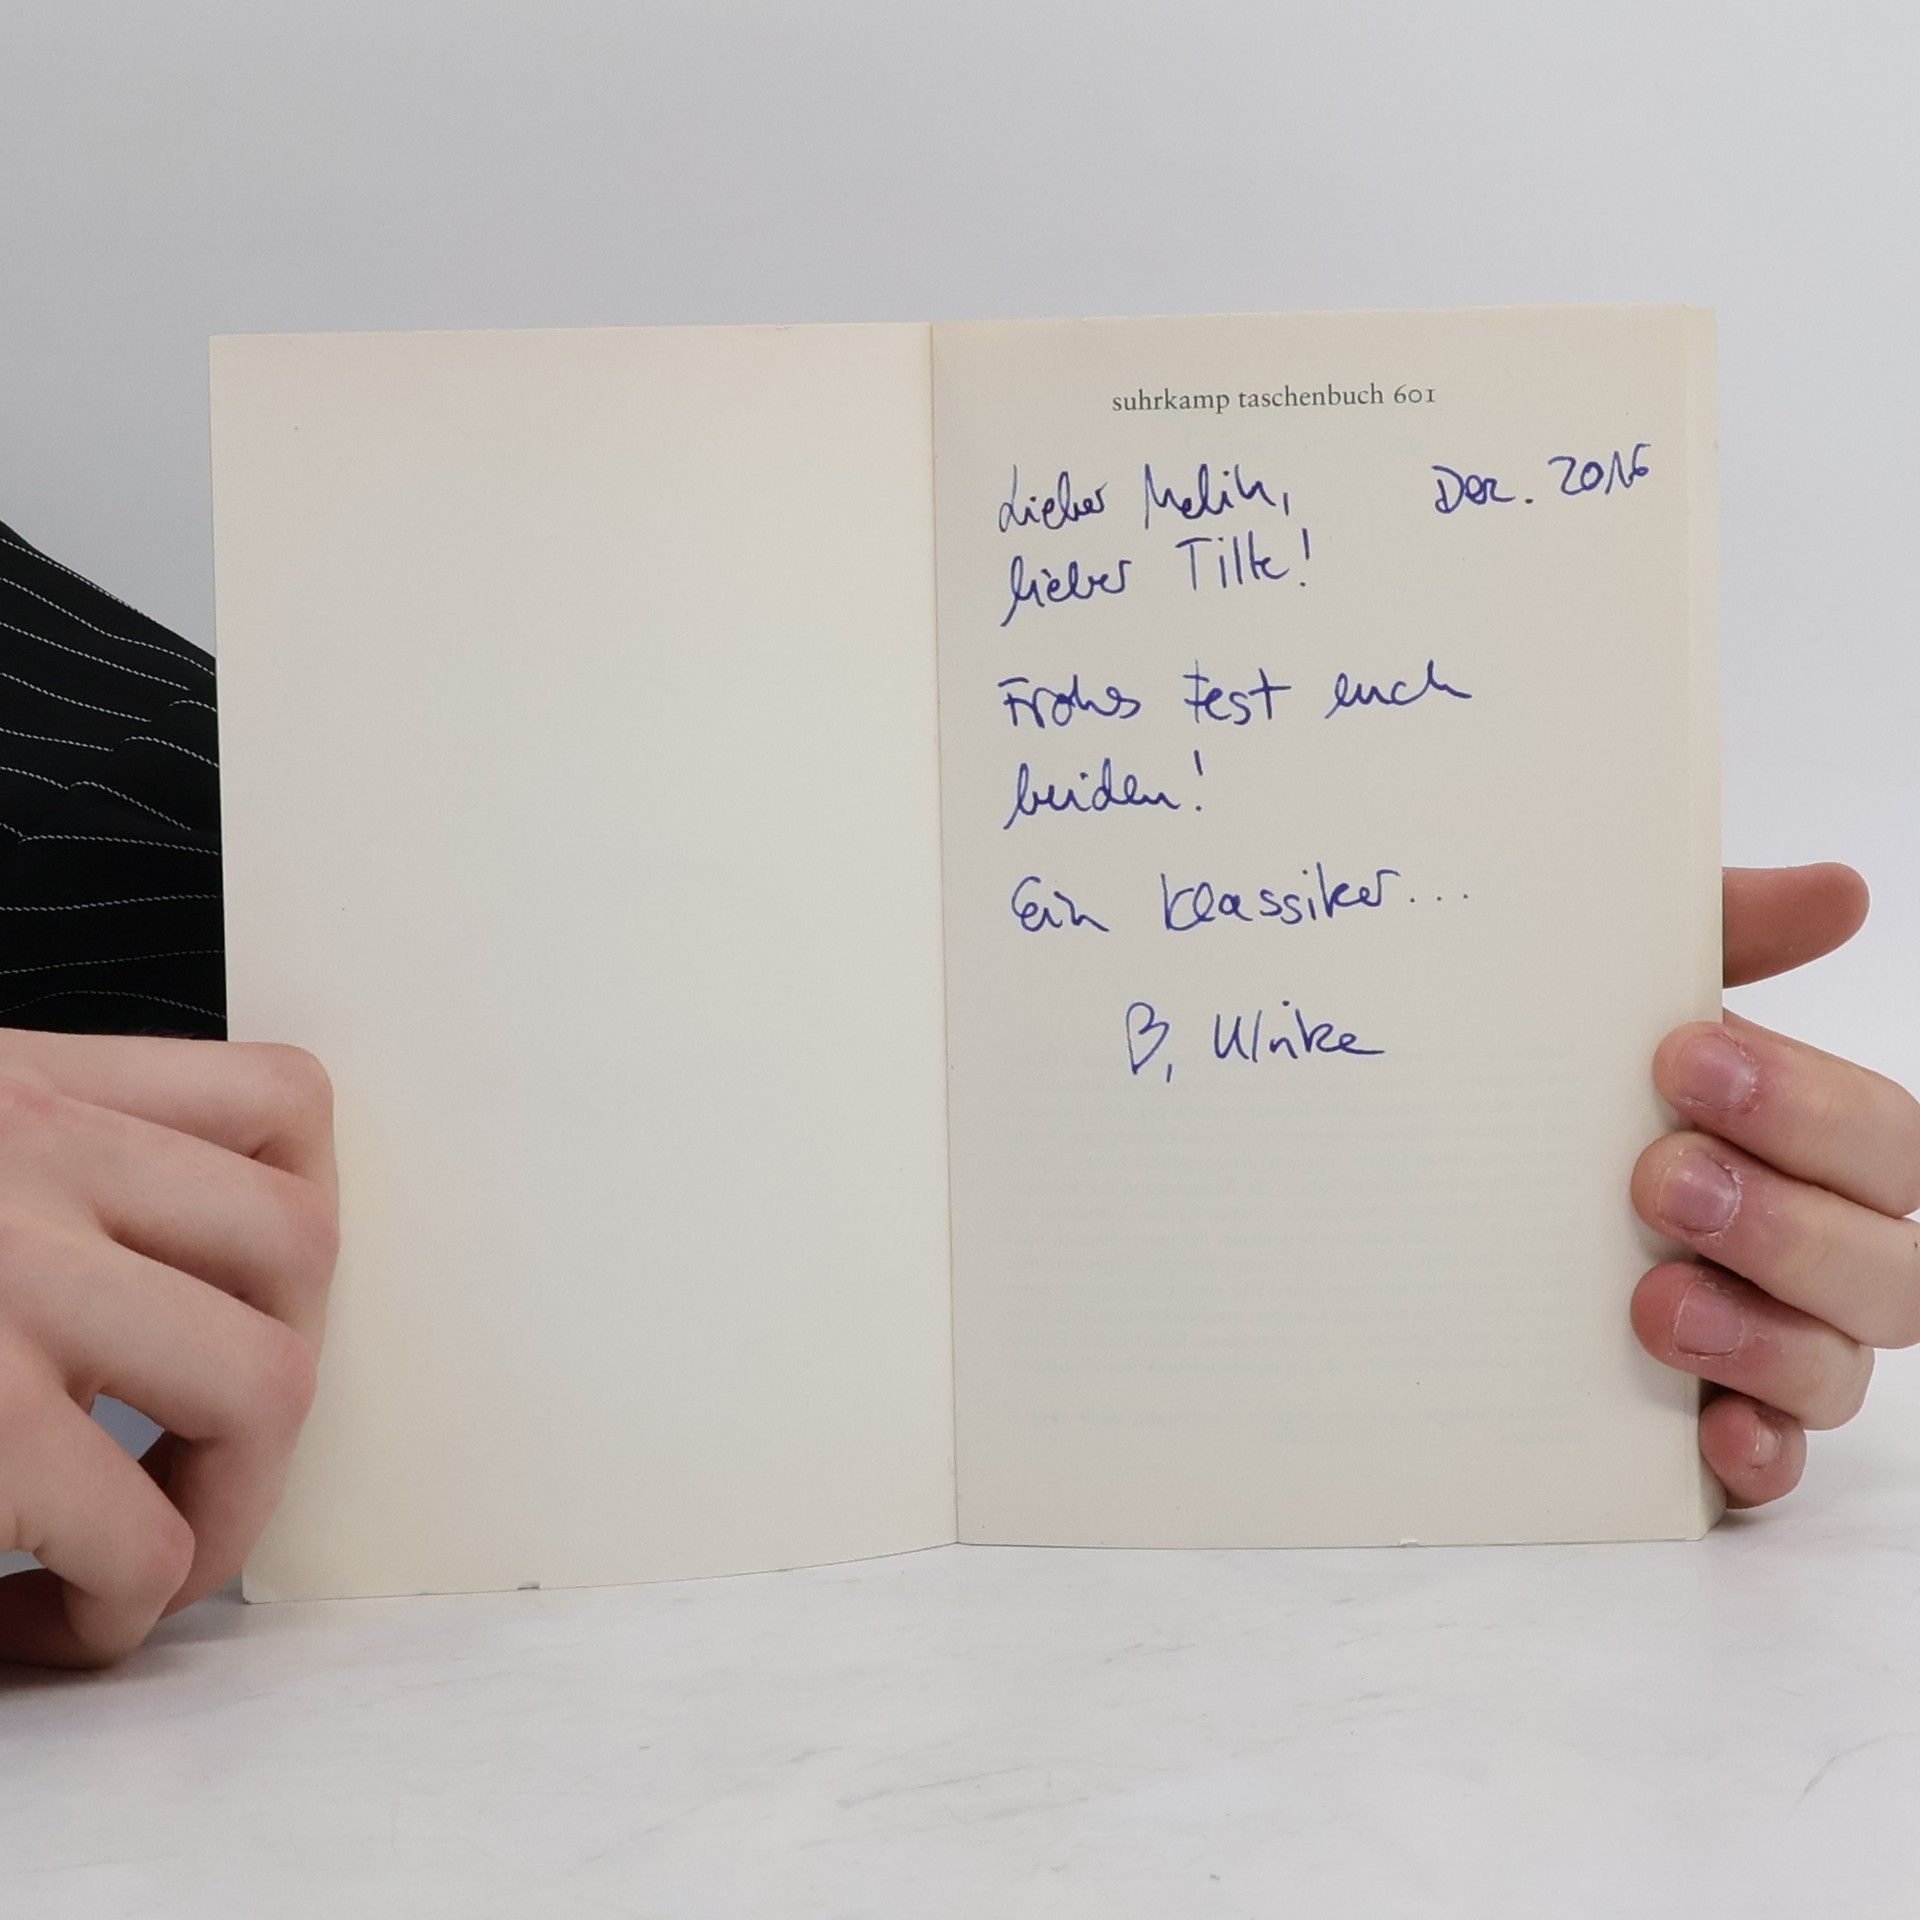 suhrkamp taschenbuch 601
Lieber Melih, Dez. 2016
lieber Till!
Frohes Fest euch
beiden!
Ein Klassiker...
B, Ulrike